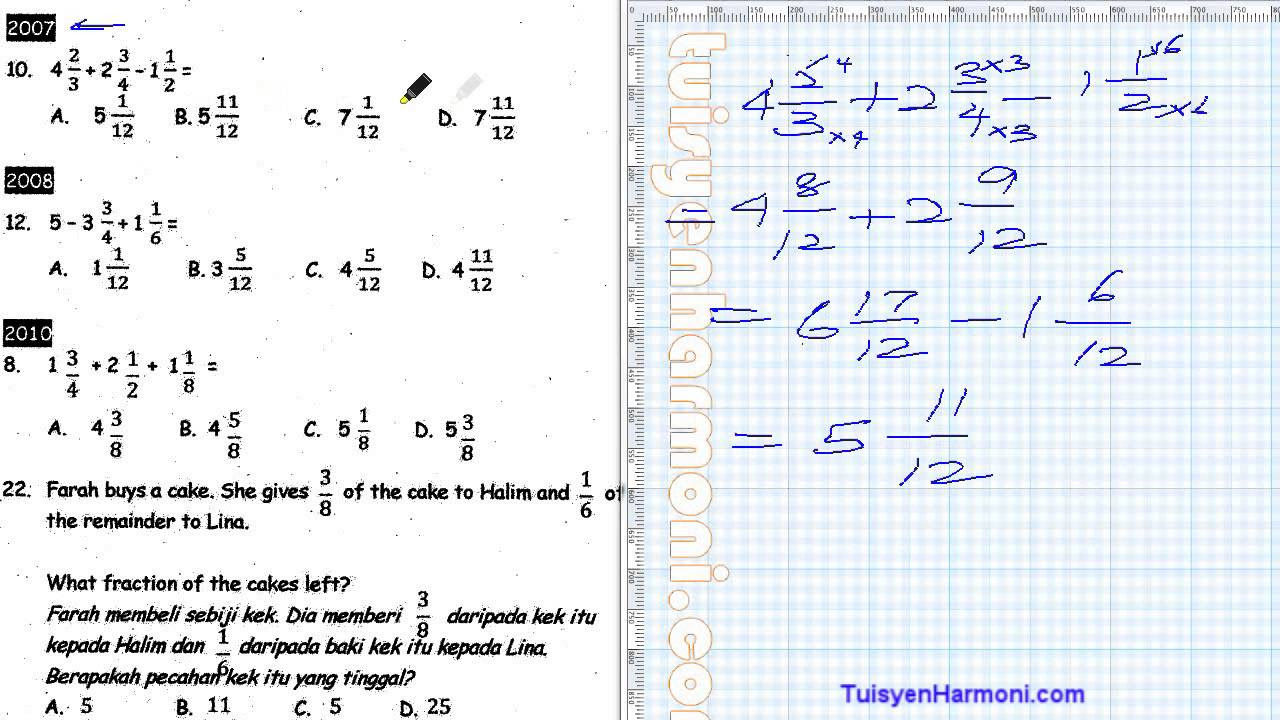 2007
10. 4 2/3 + 2 3/4 - 1 1/2 =
A. 5 1/12 B. 5 11/12 C. 7 1/12 D. 7 11/12
2008
12. 5 - 3 3/4 + 1 1/6 =
A. 1 1/12 B. 3 5/12 C. 4 5/12 D. 4 11/12
2010
8. 1 3/4 + 2 1/2 + 1 1/8 =
A. 4 3/8 B. 4 5/8 C. 5 1/8 D. 5 3/8
22. Farah buys a cake. She gives 3/8 of the cake to Halim and 1/6 of
the remainder to Lina.
What fraction of the cakes left?
Farah membeli sebiji kek. Dia memberi 3/8 daripada kek itu
kepada Halim dan 1/6 daripada baki kek itu kepada Lina.
Berapakah pecahan kek itu yang tinggal?
A. 5 B. 11 C. 5 D. 25
= 4 8/12 + 2 9/12
= 6 17/12 - 1 6/12
= 5 11/12
tuisyenharmoni.co
TuisyenHarmoni.com